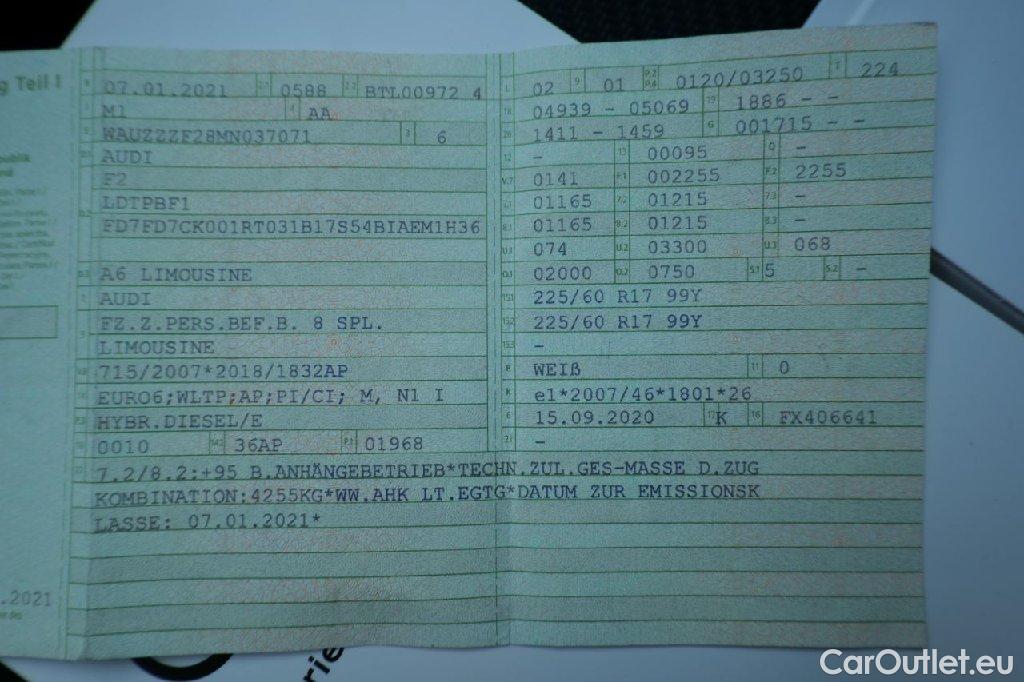 g Teil I
07.01.2021 0588 BTL00972 4
M1 AA
WAUZZZF28MN037071 6
AUDI
F2
LDTPBF1
FD7FD7CK001RT031B17S54BIAEM1H36
A6 LIMOUSINE
AUDI
FZ.Z.PERS.BEF.B. 8 SPL.
LIMOUSINE
715/2007*2018/1832AP
EURO6;WLTP;AP;PI/CI; M, N1 I
HYBR.DIESEL/E
0010 14.1 36AP P.1 01968
L 02 9 01 P.2 P.4 0120/03250 T 224
18 04939 - 05069 19 1886 - -
20 1411 - 1459 G 001715 - -
12 - 13 00095 Q -
V.7 0141 F.1 002255 F.2 2255
7.1 01165 7.2 01215 7.3 -
8.1 01165 8.2 01215 8.3 -
U.1 074 U.2 03300 U.3 068
O.1 02000 O.2 0750 S.1 5 S.2 -
15.1 225/60 R17 99Y
15.2 225/60 R17 99Y
15.3 -
R WEIß 11 0
K e1*2007/46*1801*26
6 15.09.2020 17 K 16 FX406641
21 -
7.2/8.2:+95 B.ANHÄNGEBETRIEB*TECHN.ZUL.GES-MASSE D.ZUG
KOMBINATION:4255KG*WW.AHK LT.EGTG*DATUM ZUR EMISSIONSK
LASSE: 07.01.2021*
.2021
rie
CarOutlet.eu